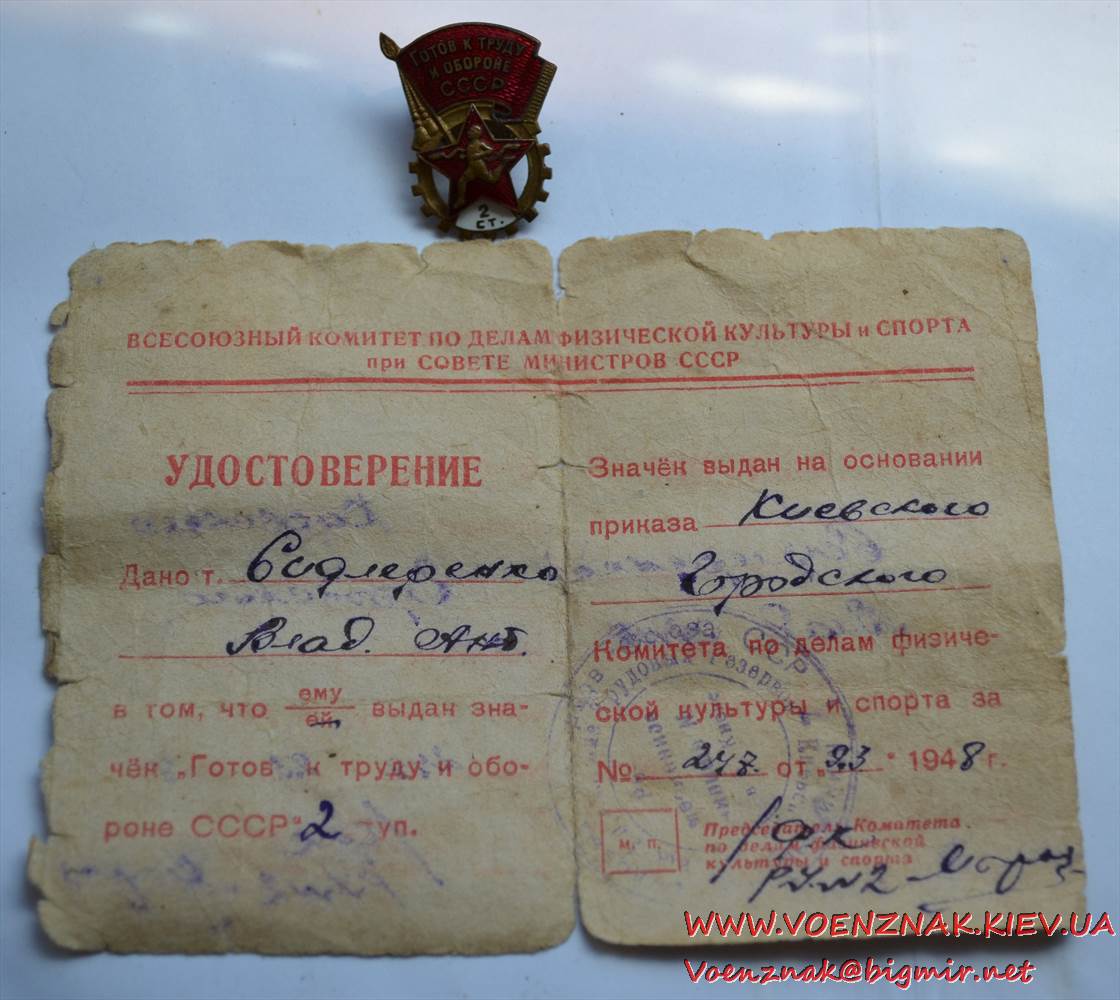 ГОТОВ К ТРУДУ
И ОБОРОНЕ
СССР
2
СТ.
ВСЕСОЮЗНЫЙ КОМИТЕТ ПО ДЕЛАМ ФИЗИЧЕСКОЙ КУЛЬТУРЫ и СПОРТА
при СОВЕТЕ МИНИСТРОВ СССР
УДОСТОВЕРЕНИЕ
Дано т.
Влад. Ант.
в том, что ему
ей
выдан зна-
чёк „Готов к труду и обо-
роне СССР" 2 туп.
Значёк выдан на основании
приказа Киевского
Городского
Комитета по делам физиче-
ской культуры и спорта за
№ 247 от „23 " 1948 г.
м. п.
Председатель Комитета
по делам физической
культуры и спорта
РУ №2
WWW.VOENZNAK.KIEV.UA
Voenznak@bigmir.net